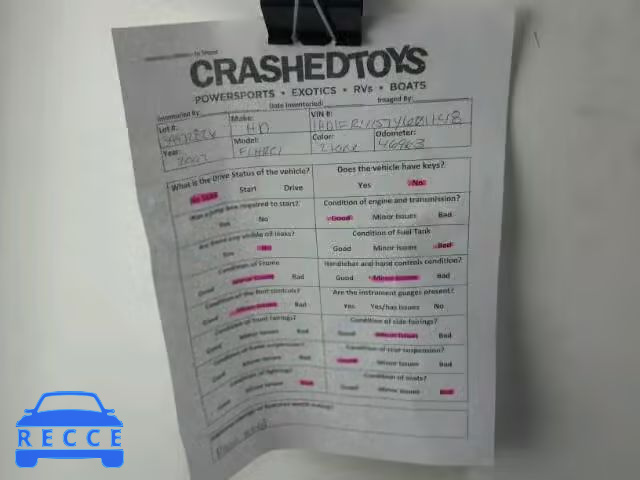 CRASHEDTOYS
POWERSPORTS • EXOTICS • RVs • BOATS
Inventoried By: Date Inventoried: Imaged By:
Lot #: Make: HD VIN #:
Year: Model: Color: Odometer:
2007 FLHRCI 46963
What is the Drive Status of the vehicle? Does the vehicle have keys?
No Start Start Drive Yes No
Was a jump box required to start? Condition of engine and transmission?
Yes No Good Minor Issues Bad
Are there any visible oil leaks? Condition of Fuel Tank
Yes No Good Minor Issues Bad
Condition of Frame Handlebar and hand controls condition?
Good Minor Issues Bad Good Minor Issues Bad
Condition of the foot controls? Are the instrument guages present?
Good Minor Issues Bad Yes Yes/has Issues No
Condition of front fairings? Condition of side fairings?
Good Minor Issues Bad Good Minor Issues Bad
Condition of front suspension? Condition of rear suspension?
Good Minor Issues Bad Good Minor Issues Bad
Condition of lighting? Condition of seats?
Good Minor Issues Bad Good Minor Issues Bad
RECCE